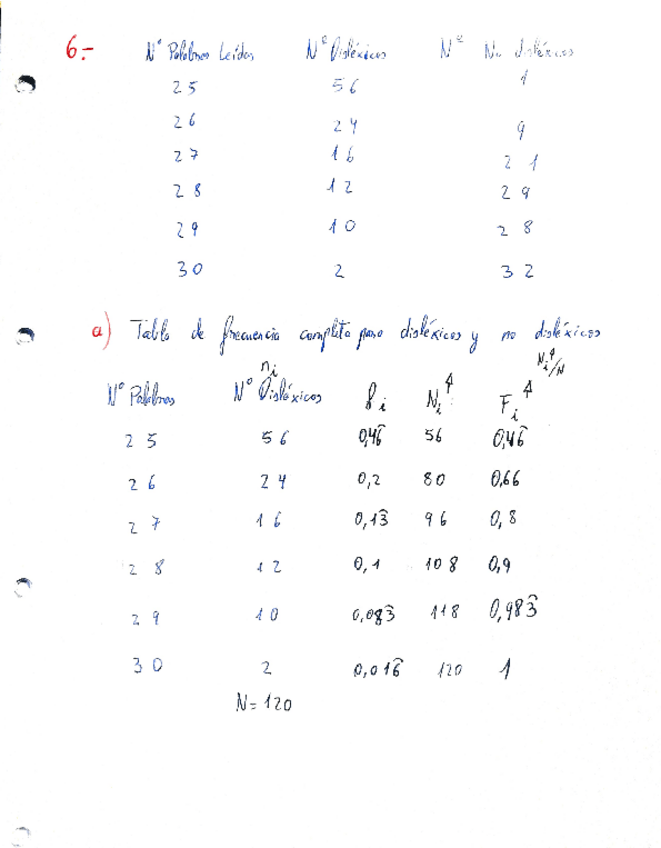 6.- Nº Palabras Leídas Nº Disléxicos Nº No disléxicos
25 56 1
26 24 9
27 16 21
28 12 29
29 10 28
30 2 32
a) Tabla de frecuencia completa para disléxicos y no disléxicos
Nº Palabras nᵢ Nº Disléxicos fᵢ Nᵢ↑ Fᵢ↑ Nᵢ↑/N
25 56 0,46̂ 56 0,46̂
26 24 0,2 80 0,66
27 16 0,13̂ 96 0,8
28 12 0,1 108 0,9
29 10 0,083̂ 118 0,983̂
30 2 0,016̂ 120 1
N=120